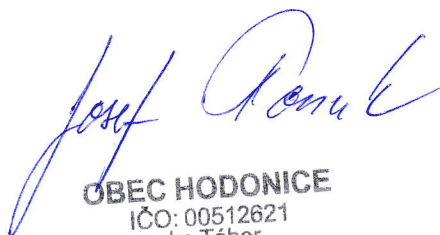 Josef
OBEC HODONICE
IČO: 00512621
Tábor